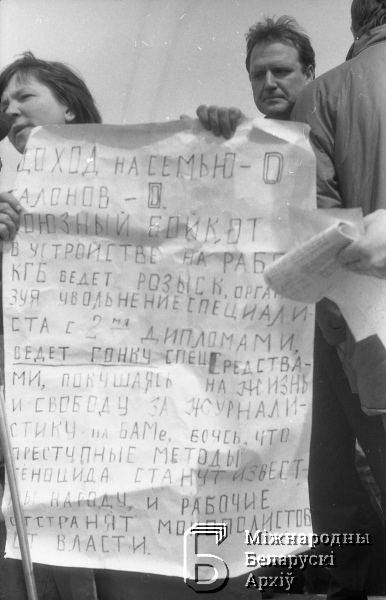 ДОХОД НА СЕМЬЮ – 0
ТАЛОНОВ – 0.
СОЮЗНЫЙ БОЙКОТ
В УСТРОЙСТВЕ НА РАБО
КГБ ВЕДЕТ РОЗЫСК, ОРГАНИ
ЗУЯ УВОЛЬНЕНИЕ СПЕЦИАЛИ-
СТА С 2мя ДИПЛОМАМИ,
ВЕДЕТ ГОНКУ СПЕЦСРЕДСТВА-
МИ, ПОКУШАЯСЬ НА ЖИЗНЬ
И СВОБОДУ ЗА ЖУРНАЛИ-
СТИКУ НА БАМе, БОЯСЬ, ЧТО
ПРЕСТУПНЫЕ МЕТОДЫ
ГЕНОЦИДА СТАНУТ ИЗВЕСТ-
НЫ НАРОДУ, И РАБОЧИЕ
ОТСТРАНЯТ МОНОПОЛИСТОВ
ОТ ВЛАСТИ.
Міжнародны
Беларускі
Архіў